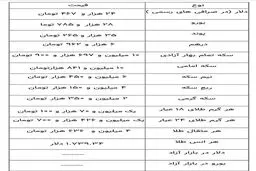 نوع قیمت
دلار (در صرافی های رسمی) ۲۴ هزار و ۴۶۷ تومان
یورو ۲۸ هزار و ۷۸۵ تومان
پوند ۳۵ هزار و ۲۶۵ تومان
درهم ۶ هزار و ۹۶۲ تومان
سکه تمام بهار آزادی ۱۰ میلیون و ۶۹۷ هزار و ۹۰۰ تومان
سکه امامی ۱۰ میلیون و ۸۴۱ هزارتومان
نیم سکه ۶ میلیون و ۴۵۰ هزار تومان
ربع سکه ۴ میلیون و ۱۵۰ هزار تومان
سکه گرمی ۲ میلیون و ۳۵۰ هزار تومان
هر گرم طلای ۱۸ عیار یک میلیون و ۷۰ هزار و ۱۰۰ تومان
هر گرم طلای ۲۴ عیار یک میلیون و ۴۲۶ هزار و ۷۰۰ تومان
هر مثقال طلا ۴ میلیون و ۶۳۶ هزار تومان
هر انس طلا ۱.۷۳۹.۳۴ دلار
دلار در بازار آزاد ———
یورو در بازار آزاد ———